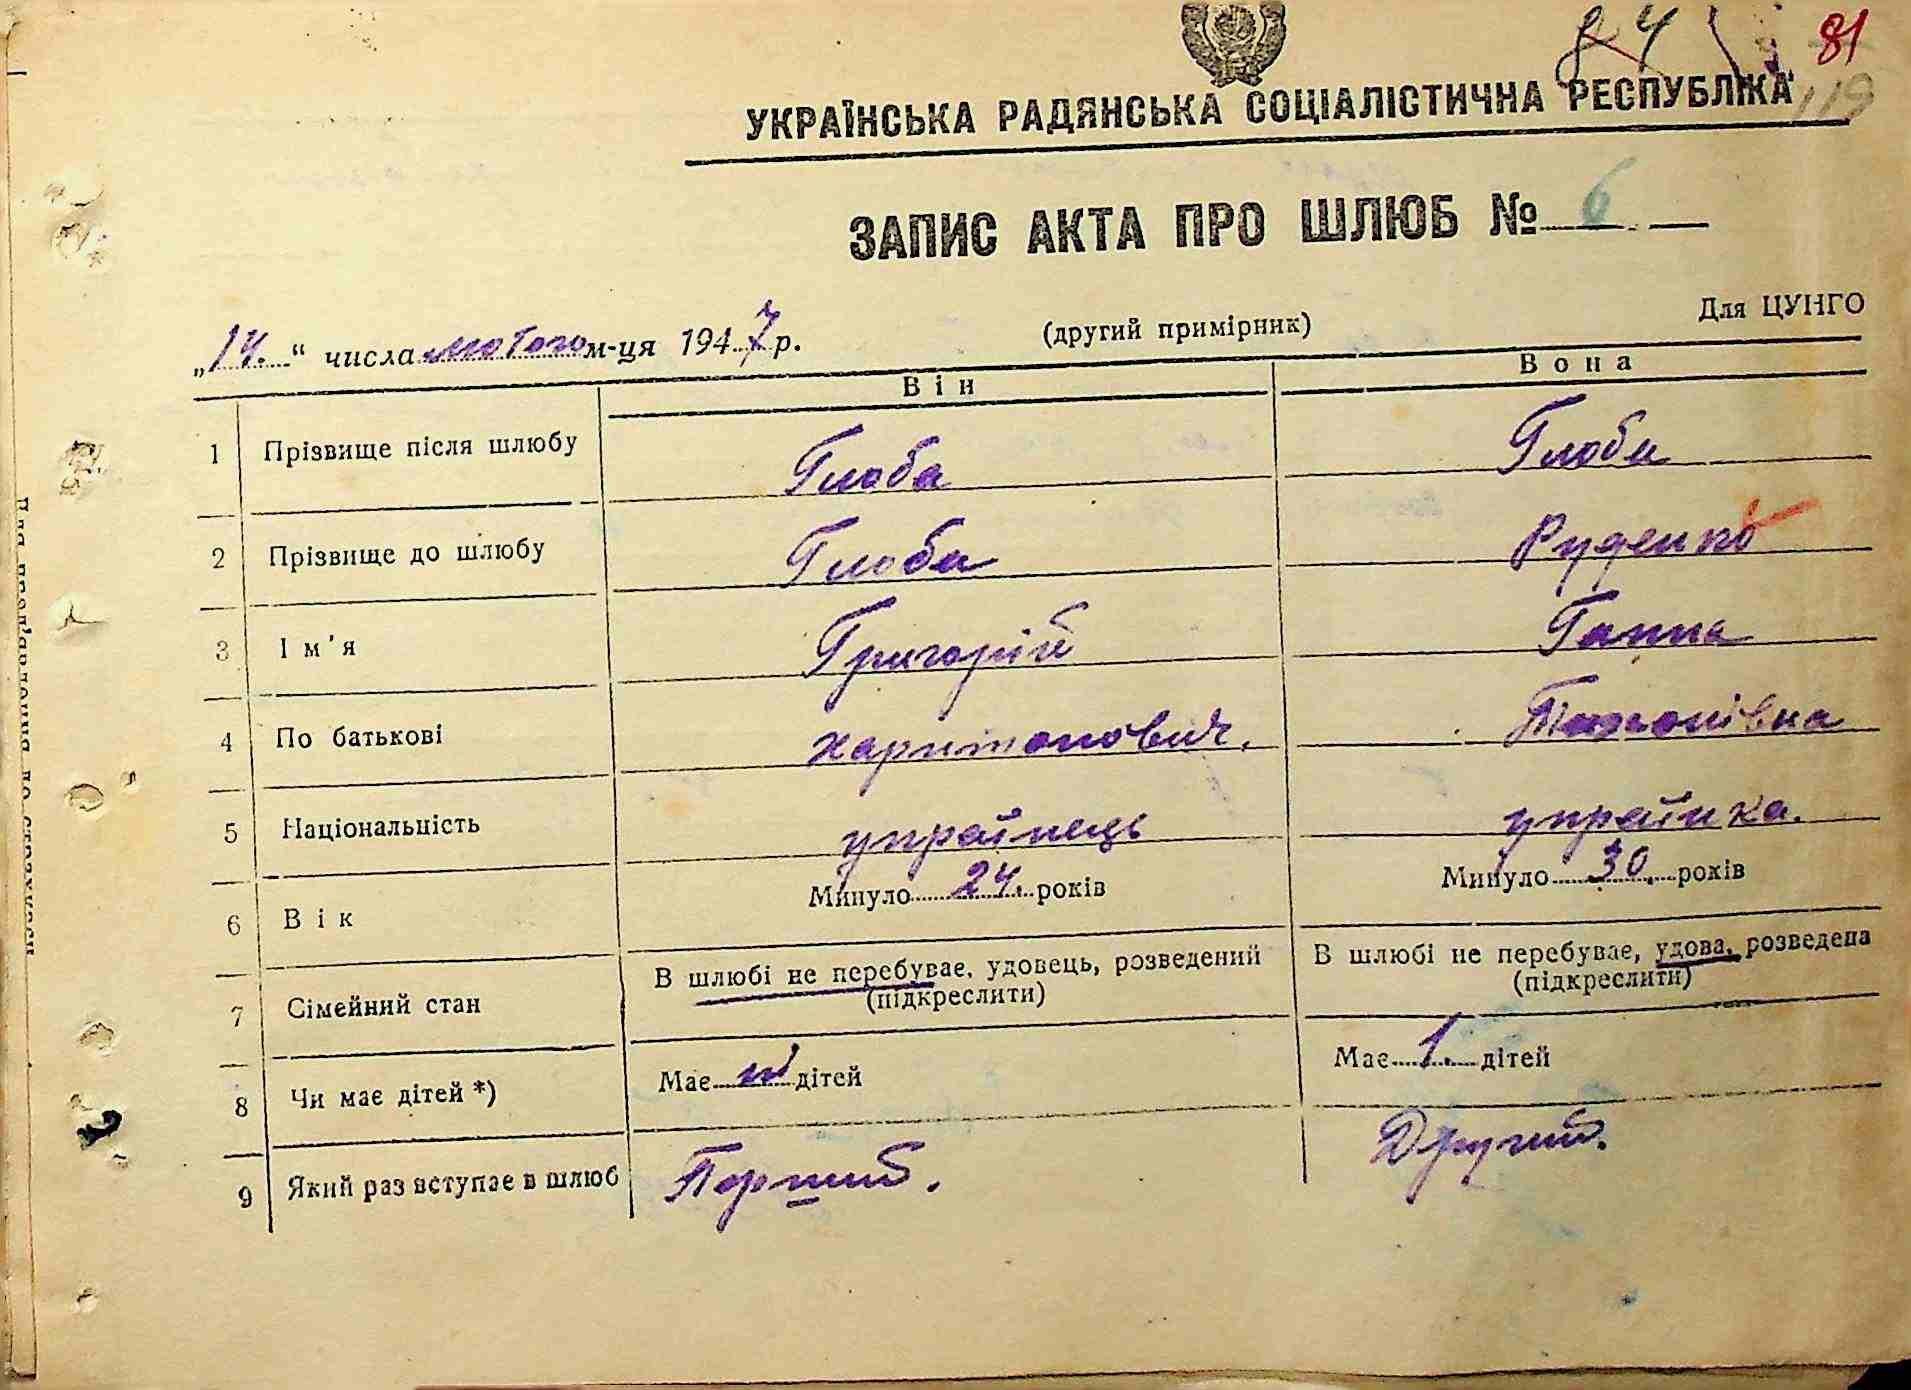 84 81
119
УКРАЇНСЬКА РАДЯНСЬКА СОЦІАЛІСТИЧНА РЕСПУБЛІКА
ЗАПИС АКТА ПРО ШЛЮБ № 6
„14.“ числа лютого м-ця 1947 р. (другий примірник) Для ЦУНГО
Він Вона
1 Прізвище після шлюбу Глоба Глоба
2 Прізвище до шлюбу Глоба Руденко
3 Ім'я Григорій Ганна
4 По батькові Харитонович.
5 Національність українець українка.
6 Вік Минуло 24. років Минуло 30. років
7 Сімейний стан В шлюбі не перебуває, удовець, розведений (підкреслити) В шлюбі не перебуває, удова, розведена (підкреслити)
8 Чи має дітей *) Має дітей Має 1. дітей
9 Який раз вступає в шлюб Перший. Другий.